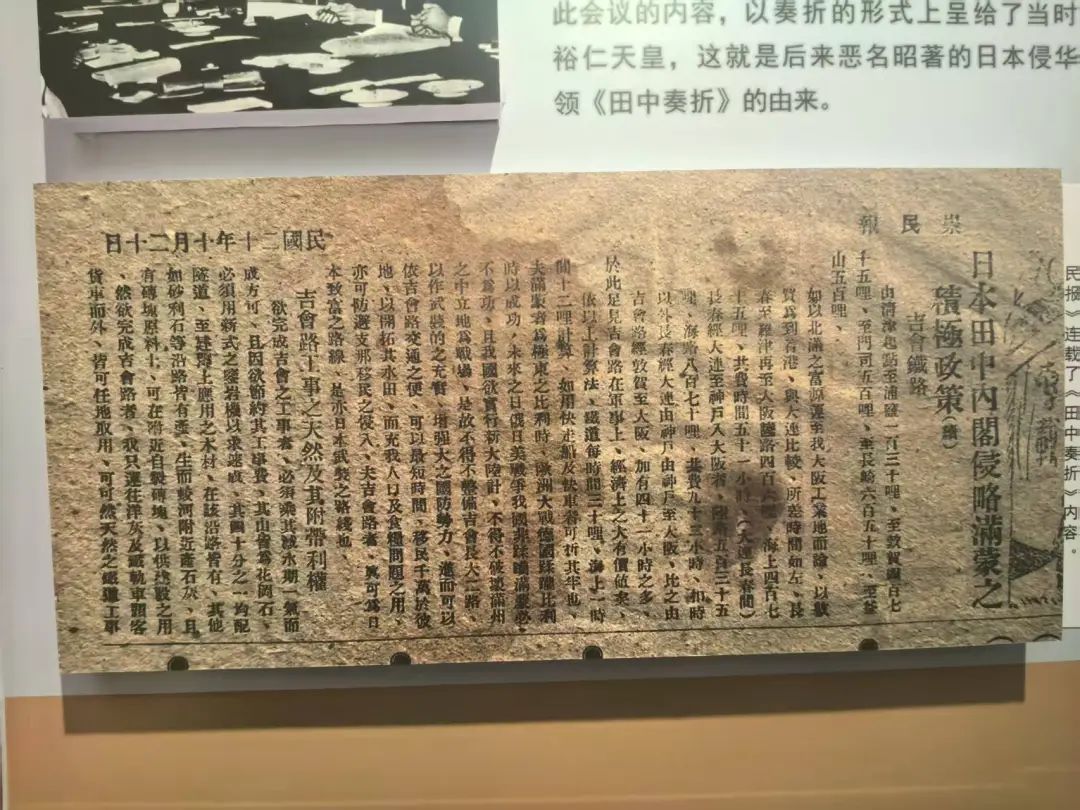 此会议的内容，以奏折的形式上呈给了当时
裕仁天皇，这就是后来恶名昭著的日本侵华
领《田中奏折》的由来。
報民崇
日本田中內閣侵略滿蒙之
積極政策（續）
吉會鐵路
由清津起點至浦鹽一百三十哩、至敦賀四百七
十五哩、至門司五百哩、至長崎六百五十哩、至釜
山五百哩、
如以北滿之富源運至我大阪工業地而論、以敦
賀為到着港、與大連比較、所差時間如左、長
春至羅津再至大阪陸路四百六哩、海上四百七
十五哩、共費時間五十一小時、（大連長春間）
長春經大連至神戶入大阪者、陸路五百三十五
哩、海路八百七十哩、共費九十二小時、扣時
以外長春經大連由神戶至大阪、比之由
吉會路經敦賀至大阪、加有四十一小時之多、
於此足見吉會路在軍事上、經濟上之大有價値矣、
依以上計算法、鐵道每時間三十哩、海上一時
間十二哩計算、如用快走船及快車者可折其半也
夫滿蒙者為極東之比利時、歐洲大戰德國蹂躪比利
時以成功、未來之日俄日美戰爭我國非蹂躪滿蒙必
不為功、且我國欲實行新大陸計、不得不破壞滿州
之中立地為戰場、是故不得不整備吉會長大二路、
以作武裝的之充實、增强大之國防勢力、進而可以
依吉會路交通之便、可以最短時間、移民千萬於彼
地、以開拓其水田、而充我人口及食糧問題之用、
亦可防遏支那移民之侵入、夫吉會路者、眞可為日
本致富之路線、是亦日本武裝之路綫也、
吉會路工事之天然及其附帶利權
欲完成吉會之工事者、必須乘其融氷期一氣而
成方可、且因欲節約其工事費、其山質為花崗石、
必須用新式之鑿岩機以求速成、其間十分之一均配
隧道、至建築上應用之木材、在該沿路皆有、其他
如砂利石等沿路皆有產、生而蛟河附近產石灰、且
有磚塊原料土、可在附近自製磚塊、以供建設之用
、然欲完成吉會路者、我只運往洋灰及鐵軌車頭客
貨車而外、皆可任地取用、可可然天然之鐵道工事
民國二十年十月二十日
民报》连载了《田中奏折》内容。